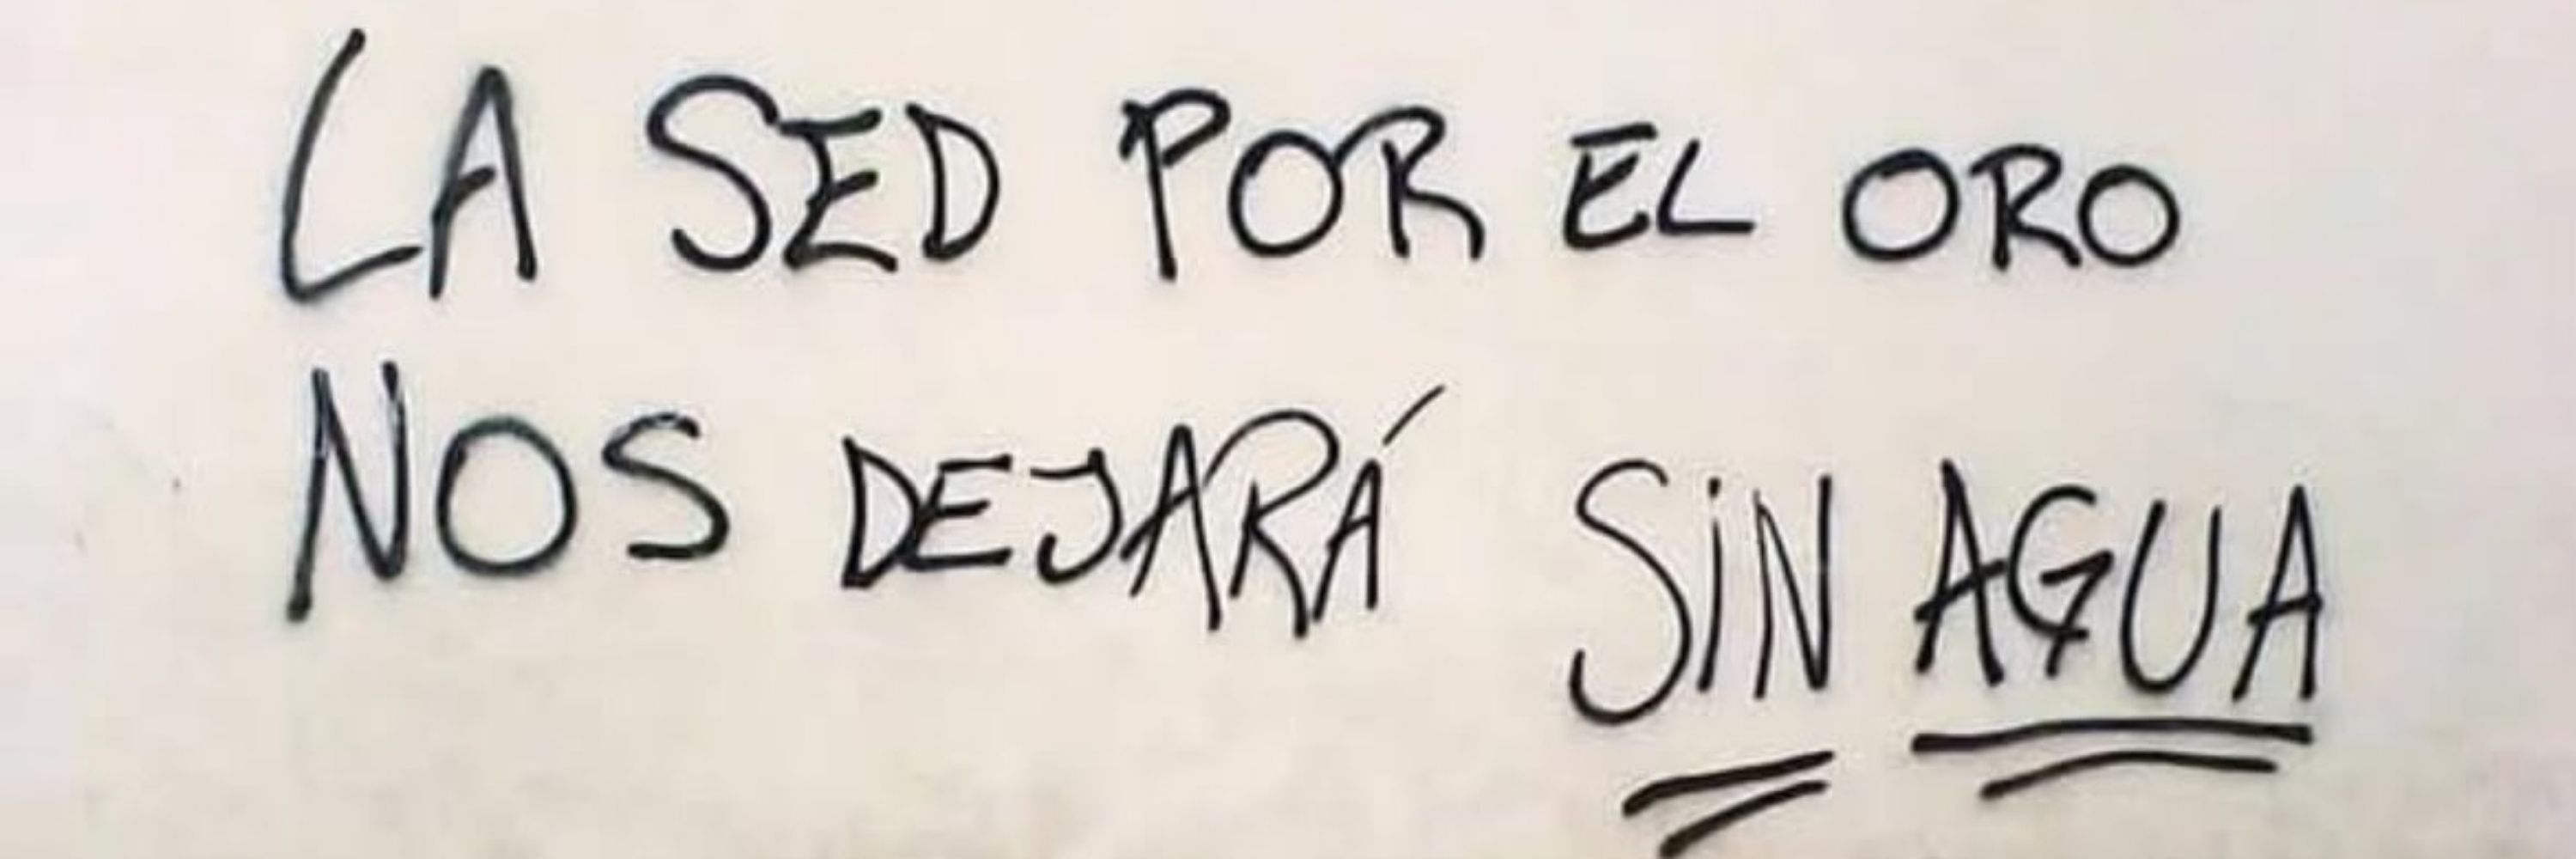 LA SED POR EL ORO
NOS DEJARÁ SiN AGUA